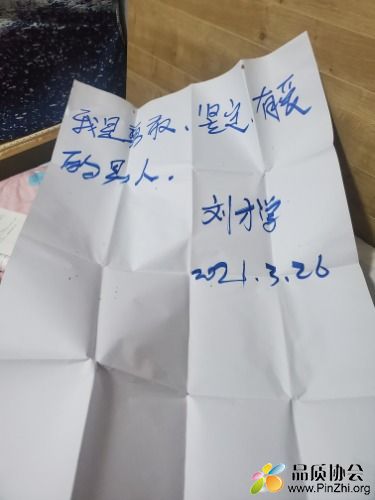 我是勇敢、坚定、有爱
的男人.
刘才学
2021.3.26
品质协会
www.PinZhi.org